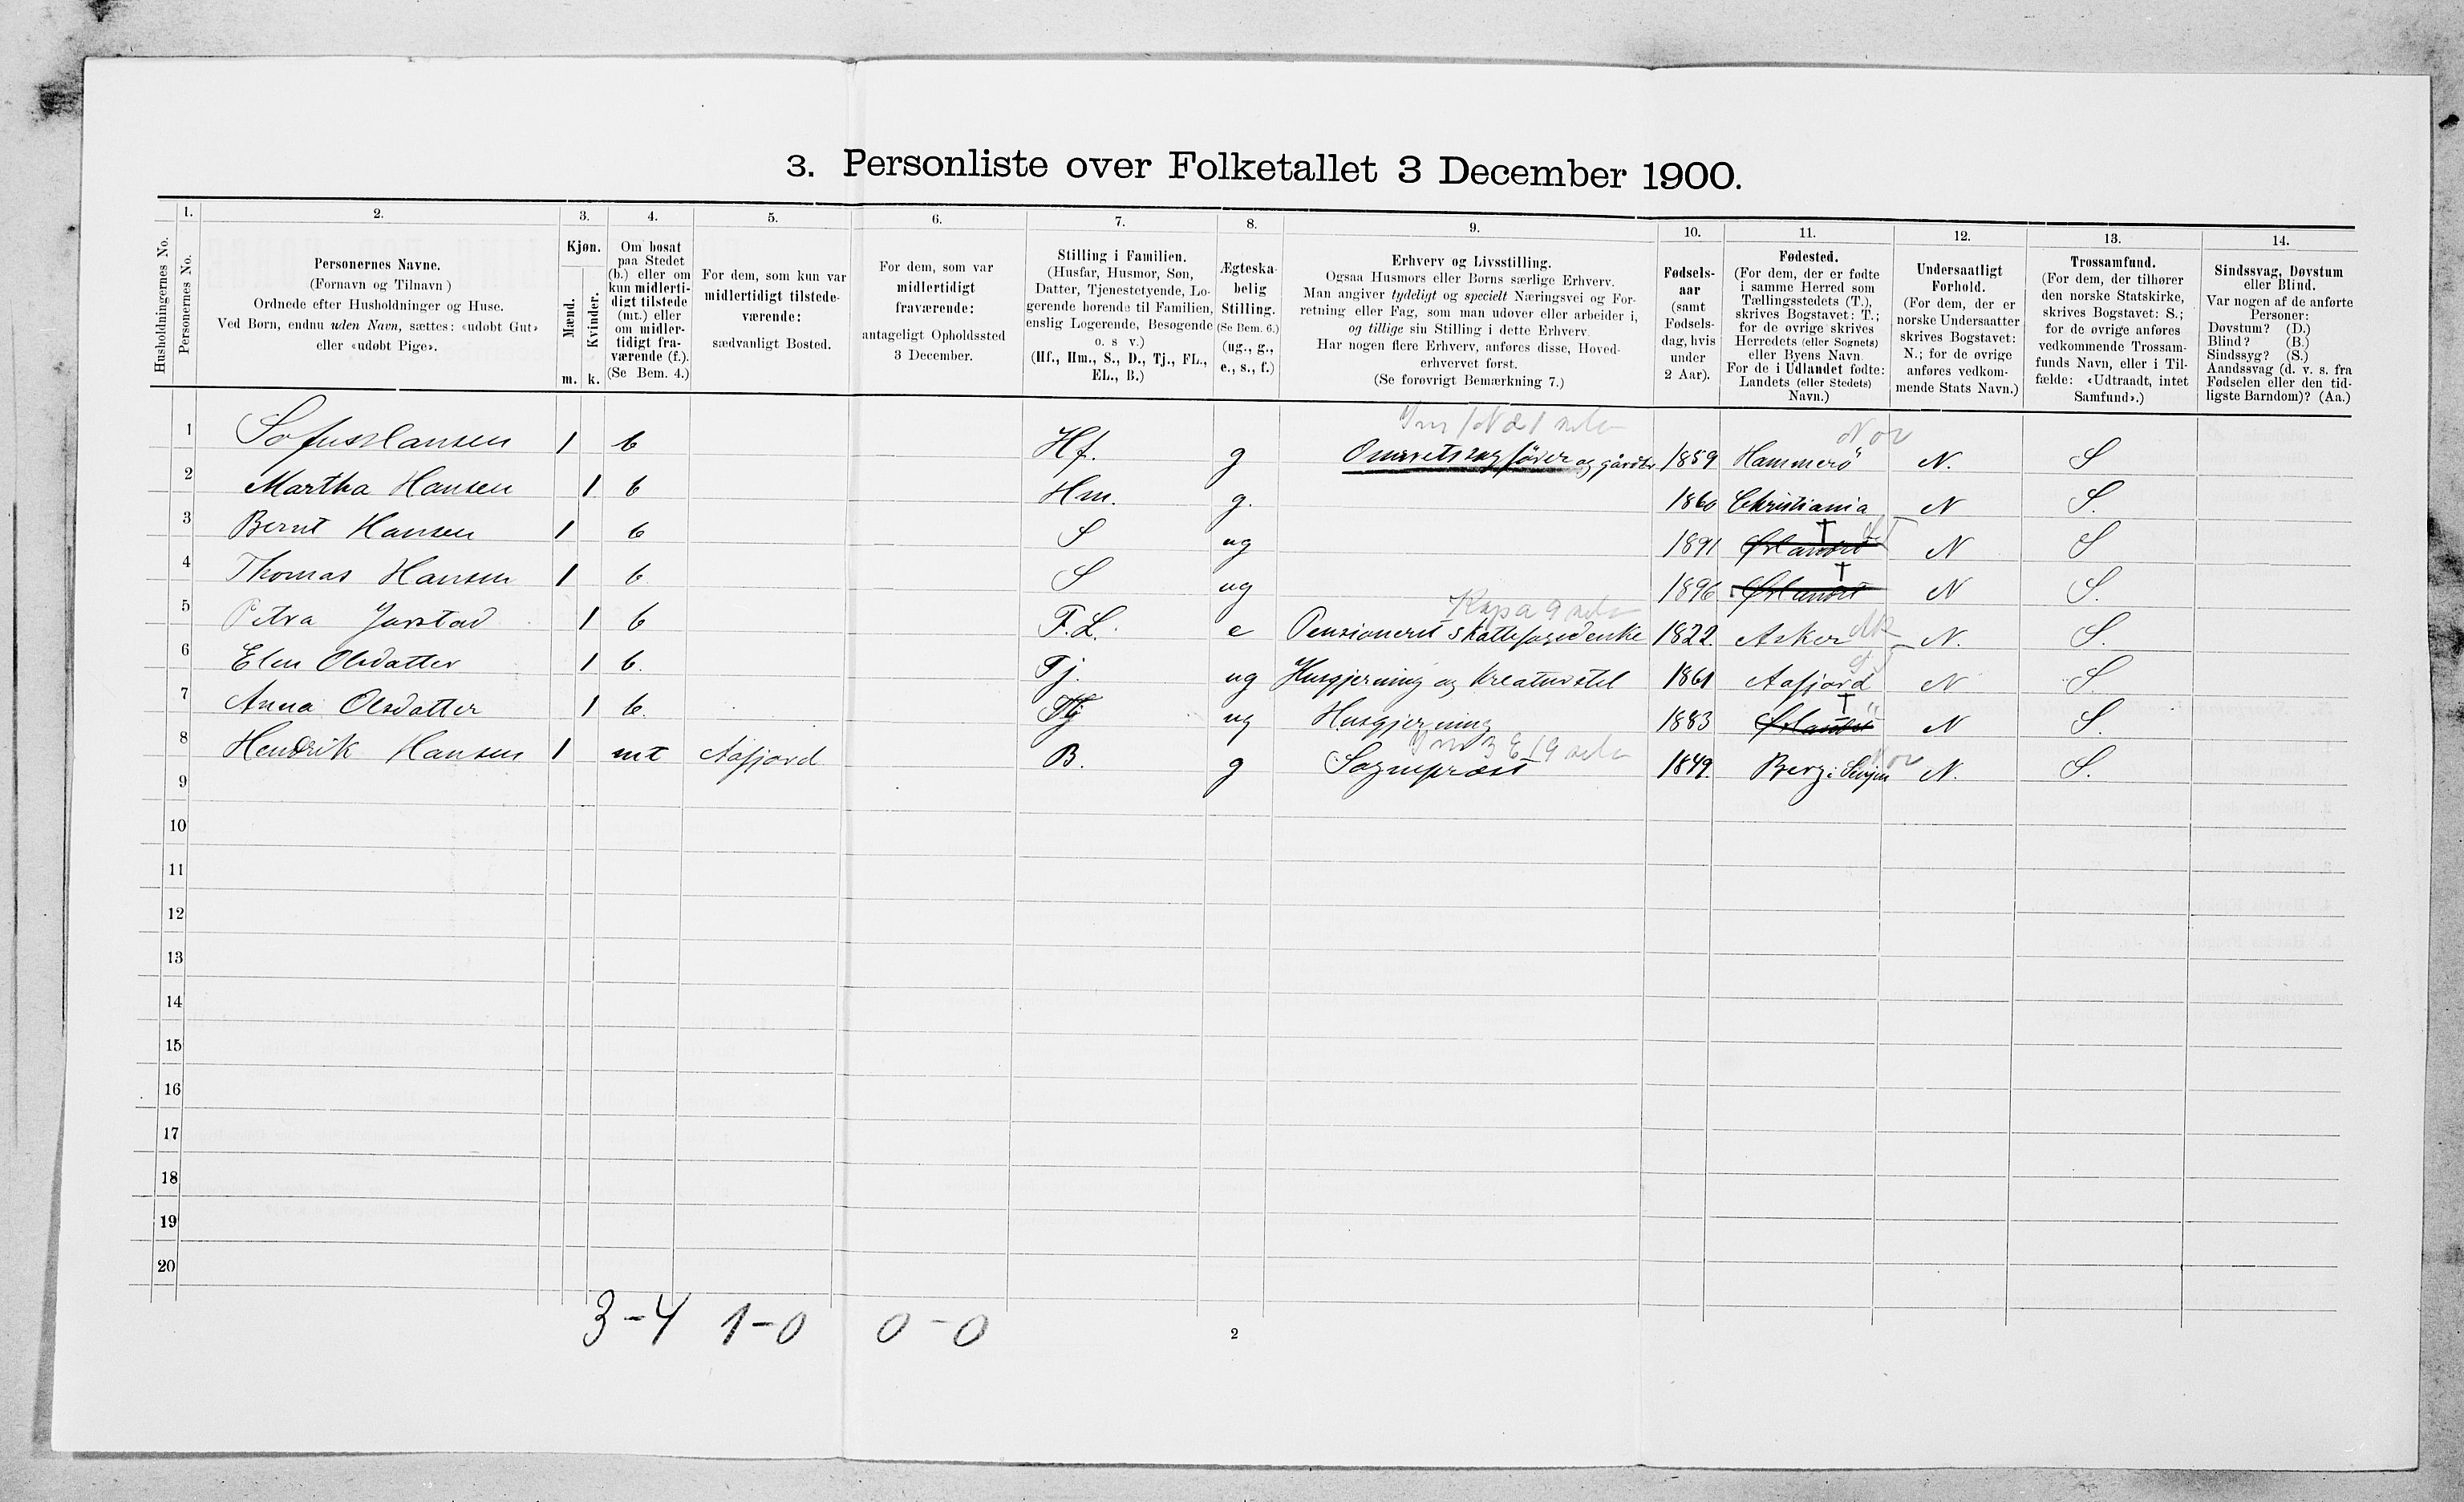 3. Personliste over Folketallet 3 December 1900.
1. 2. 3. 4. 5. 6. 7. 8. 9. 10. 11. 12. 13. 14.
Husholdningernes No.
Personernes No.
Personernes Navne.
(Fornavn og Tilnavn)
Ordnede efter Husholdninger og Huse.
Ved Børn, endnu uden Navn, sættes: «udøbt Gut»
eller «udøbt Pige».
Kjøn.
Mænd.
Kvinder.
m. k.
Om bosat
paa Stedet
(b.) eller om
kun midlerti-
digt tilstede
(mt.) eller
om midler-
tidigt fra-
værende (f.).
(Se Bem. 4.)
For dem, som kun var
midlertidigt tilstede-
værende:
sædvanligt Bosted.
For dem, som var
midlertidigt
fraværende:
antageligt Opholdssted
3 December.
Stilling i Familien.
(Husfar, Husmor, Søn,
Datter, Tjenestetyende, Lo-
gerende hørende til Familien,
enslig Logerende, Besøgende
o. s v.)
(Hf., Hm., S., D., Tj., FL.,
EL., B.)
Ægteska-
belig
Stilling.
(Se Bem. 6.)
(ug., g.,
e., s., f.)
Erhverv og Livsstilling.
Ogsaa Husmors eller Børns særlige Erhverv.
Man angiver tydeligt og specielt Næringsvei og For-
retning eller Fag, som man udøver eller arbeider i,
og tillige sin Stilling i dette Erhverv.
Har nogen flere Erhverv, anføres disse, Hoved-
erhvervet først.
(Se forøvrigt Bemærkning 7.)
Fødsels-
aar
(samt
Fødsels-
dag, hvis
under
2 Aar).
Fødested.
(For dem, der er fødte
i samme Herred som
Tællingsstedets (T.),
skrives Bogstavet: T.;
for de øvrige skrives
Herredets (eller Sognets)
eller Byens Navn.
For de i Udlandet fødte:
Landets (eller Stedets)
Navn.)
Undersaatligt
Forhold.
(For dem, der er
norske Undersaatter
skrives Bogstavet:
N.; for de øvrige
anføres vedkom-
mende Stats Navn.)
Trossamfund.
(For dem, der tilhører
den norske Statskirke,
skrives Bogstavet: S.;
for de øvrige anføres
vedkommende Trossam-
funds Navn, eller i Til-
fælde: «Udtraadt, intet
Samfund».)
Sindssvag, Døvstum
eller Blind.
Var nogen af de anførte
Personer:
Døvstum? (D.)
Blind? (B.)
Sindssyg? (S.)
Aandssvag (d. v. s. fra
Fødselen eller den tid-
ligste Barndom)? (Aa.)
1 Sofus Hansen 1 b Hf. g Overretssagfører og gårdbr 1859 Hammerö Nor N. S
2 Martha Hansen 1 b Hm. g. 1860 Christiania N S.
3 Bernt Hansen 1 b S ug 1891 Ørlandet T N S
4 Thomas Hansen 1 b. S ug 1896 Ørlandet T N S.
5 Petra Jorstad 1 b F.L. e Pensioneret skattefogedenke 1822. Asker N. S.
6 Elen Olsdatter 1 b. Tj. ug Husgjerning og Kreaturstel 1861 Aafjord N S.
7 Anna Olsdatter 1 b. Tj ug Husgjerning 1883 Ørlandet T N S.
8 Hendrik Hansen 1 mt Aafjord B. g Sognepræst 1849. Berg i Senjen Nor N. S.
9
10
11
12
13
14
15
16
17
18
19
20
3-4 1-0 0-0
2